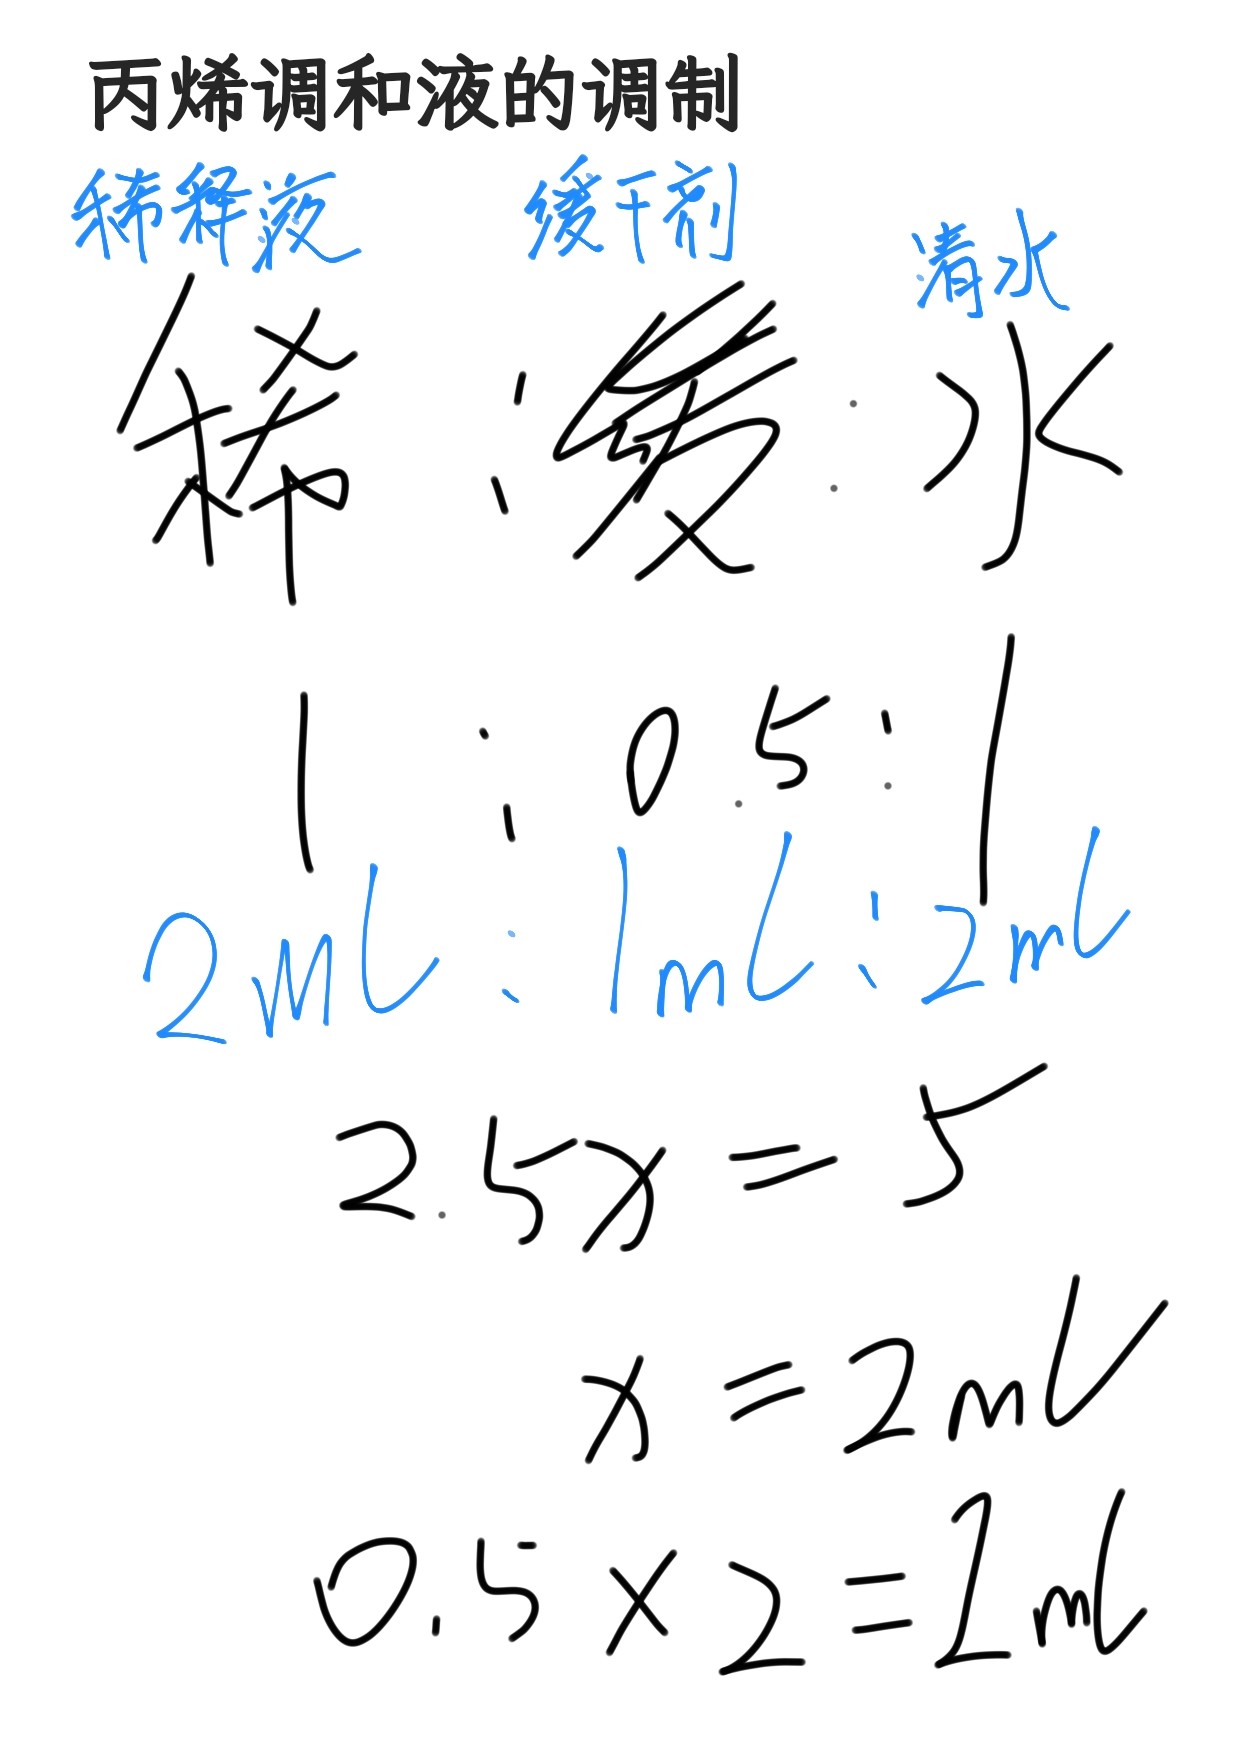 丙烯调和液的调制
稀释液 缓干剂 清水
稀:缓:水
1:0.5:1
2ml:1ml:2ml
2.5x=5
x=2ml
0.5×2=1ml